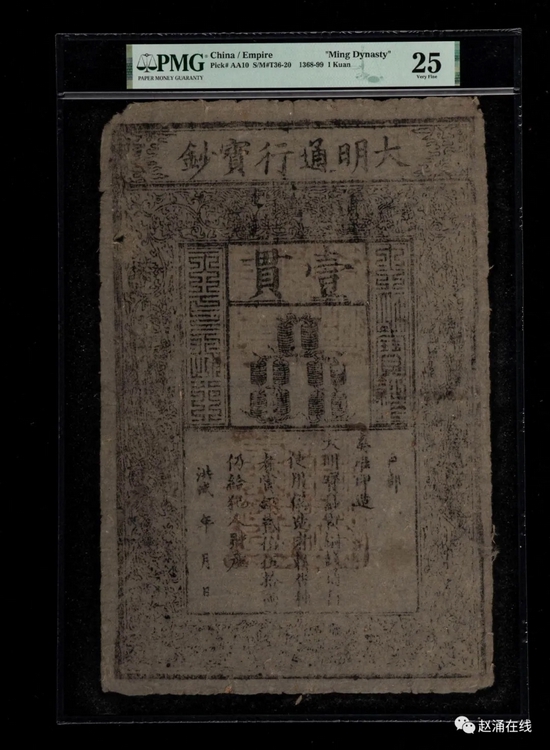 PMG
PAPER MONEY GUARANTY
China / Empire "Ming Dynasty"
Pick# AA10 S/M#T36-20 1368-99 1 Kuan
25
Very Fine
大明通行寶鈔
壹貫
戶部
奏准印造
大明寶鈔與銅錢通行
使用偽造者
者賞銀貳伯伍拾兩
仍給犯人財產
洪武 年 月 日
赵涌在线